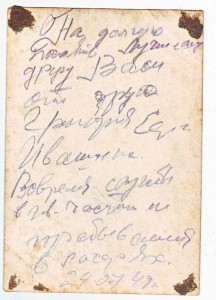 На долгую
память Лучшему
другу Васи
от друга
Григория
Ивашина
Вовремя службы
в в. части и
пребывания
в
49г.